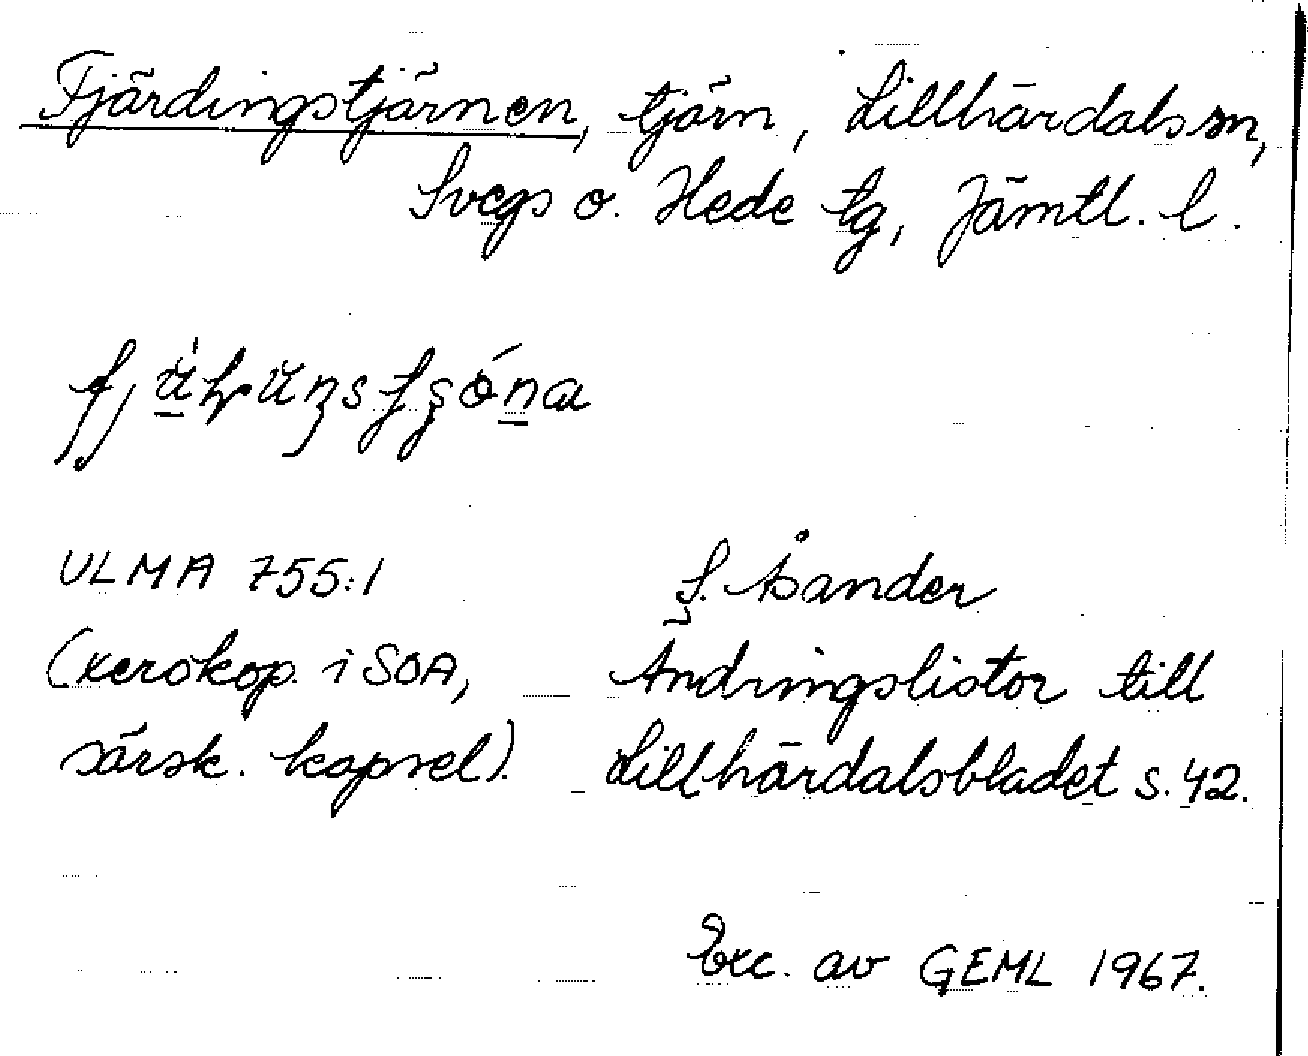 Fjärdingstjärnen, tjärn, Lillhärdals sn,
Svegs o. Hede tg, Jämtl. l.
ULMA 755:1
S. Åsander
(xerokop. i SOA,
Ändringslistor till
särsk. kapsel).
Lillhärdalsbladet s. 42.
Exc. av GEML 1967.